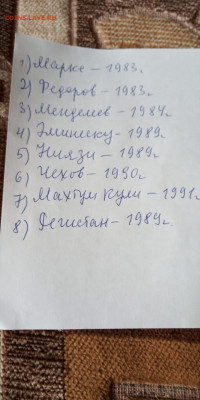 1) Маркс – 1983г.
2) Федоров – 1983г.
3) Менделеев – 1984г.
4) Эминеску – 1989г.
5) Ниязи – 1989г.
6) Чехов – 1990г.
7) Махтум кули – 1991г.
8) Регистан – 1989г.